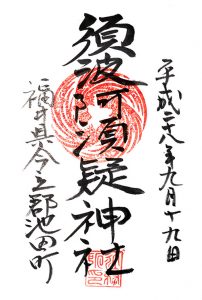 平成二十八年九月十九日
須波阿湏疑神社
福井県今立郡池田町